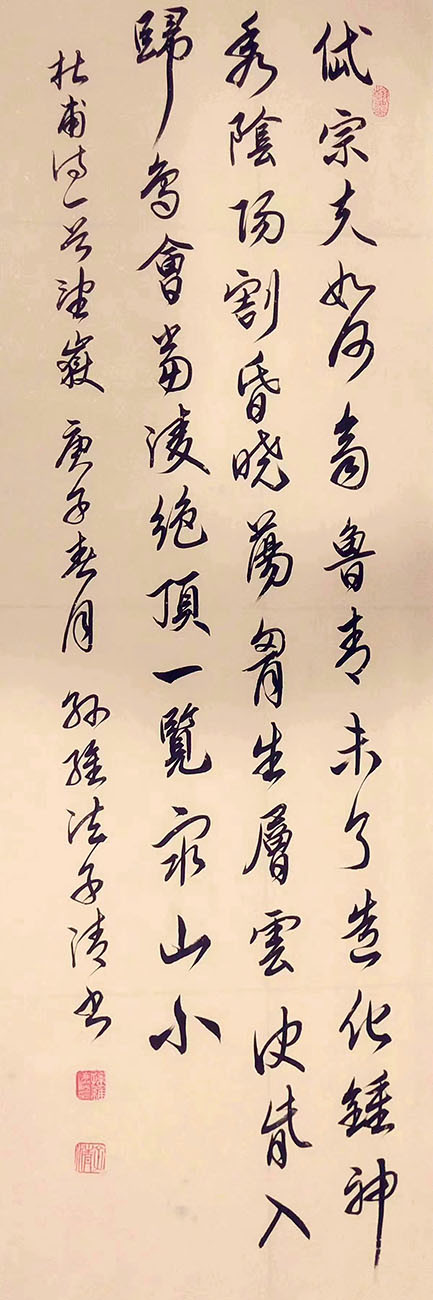 岱宗夫如何齊魯青未了造化鍾神
秀陰陽割昏曉蕩胷生層雲決眥入
歸鳥會當凌絕頂一覽眾山小
杜甫詩一首望嶽 庚子春月 孫維法子清書